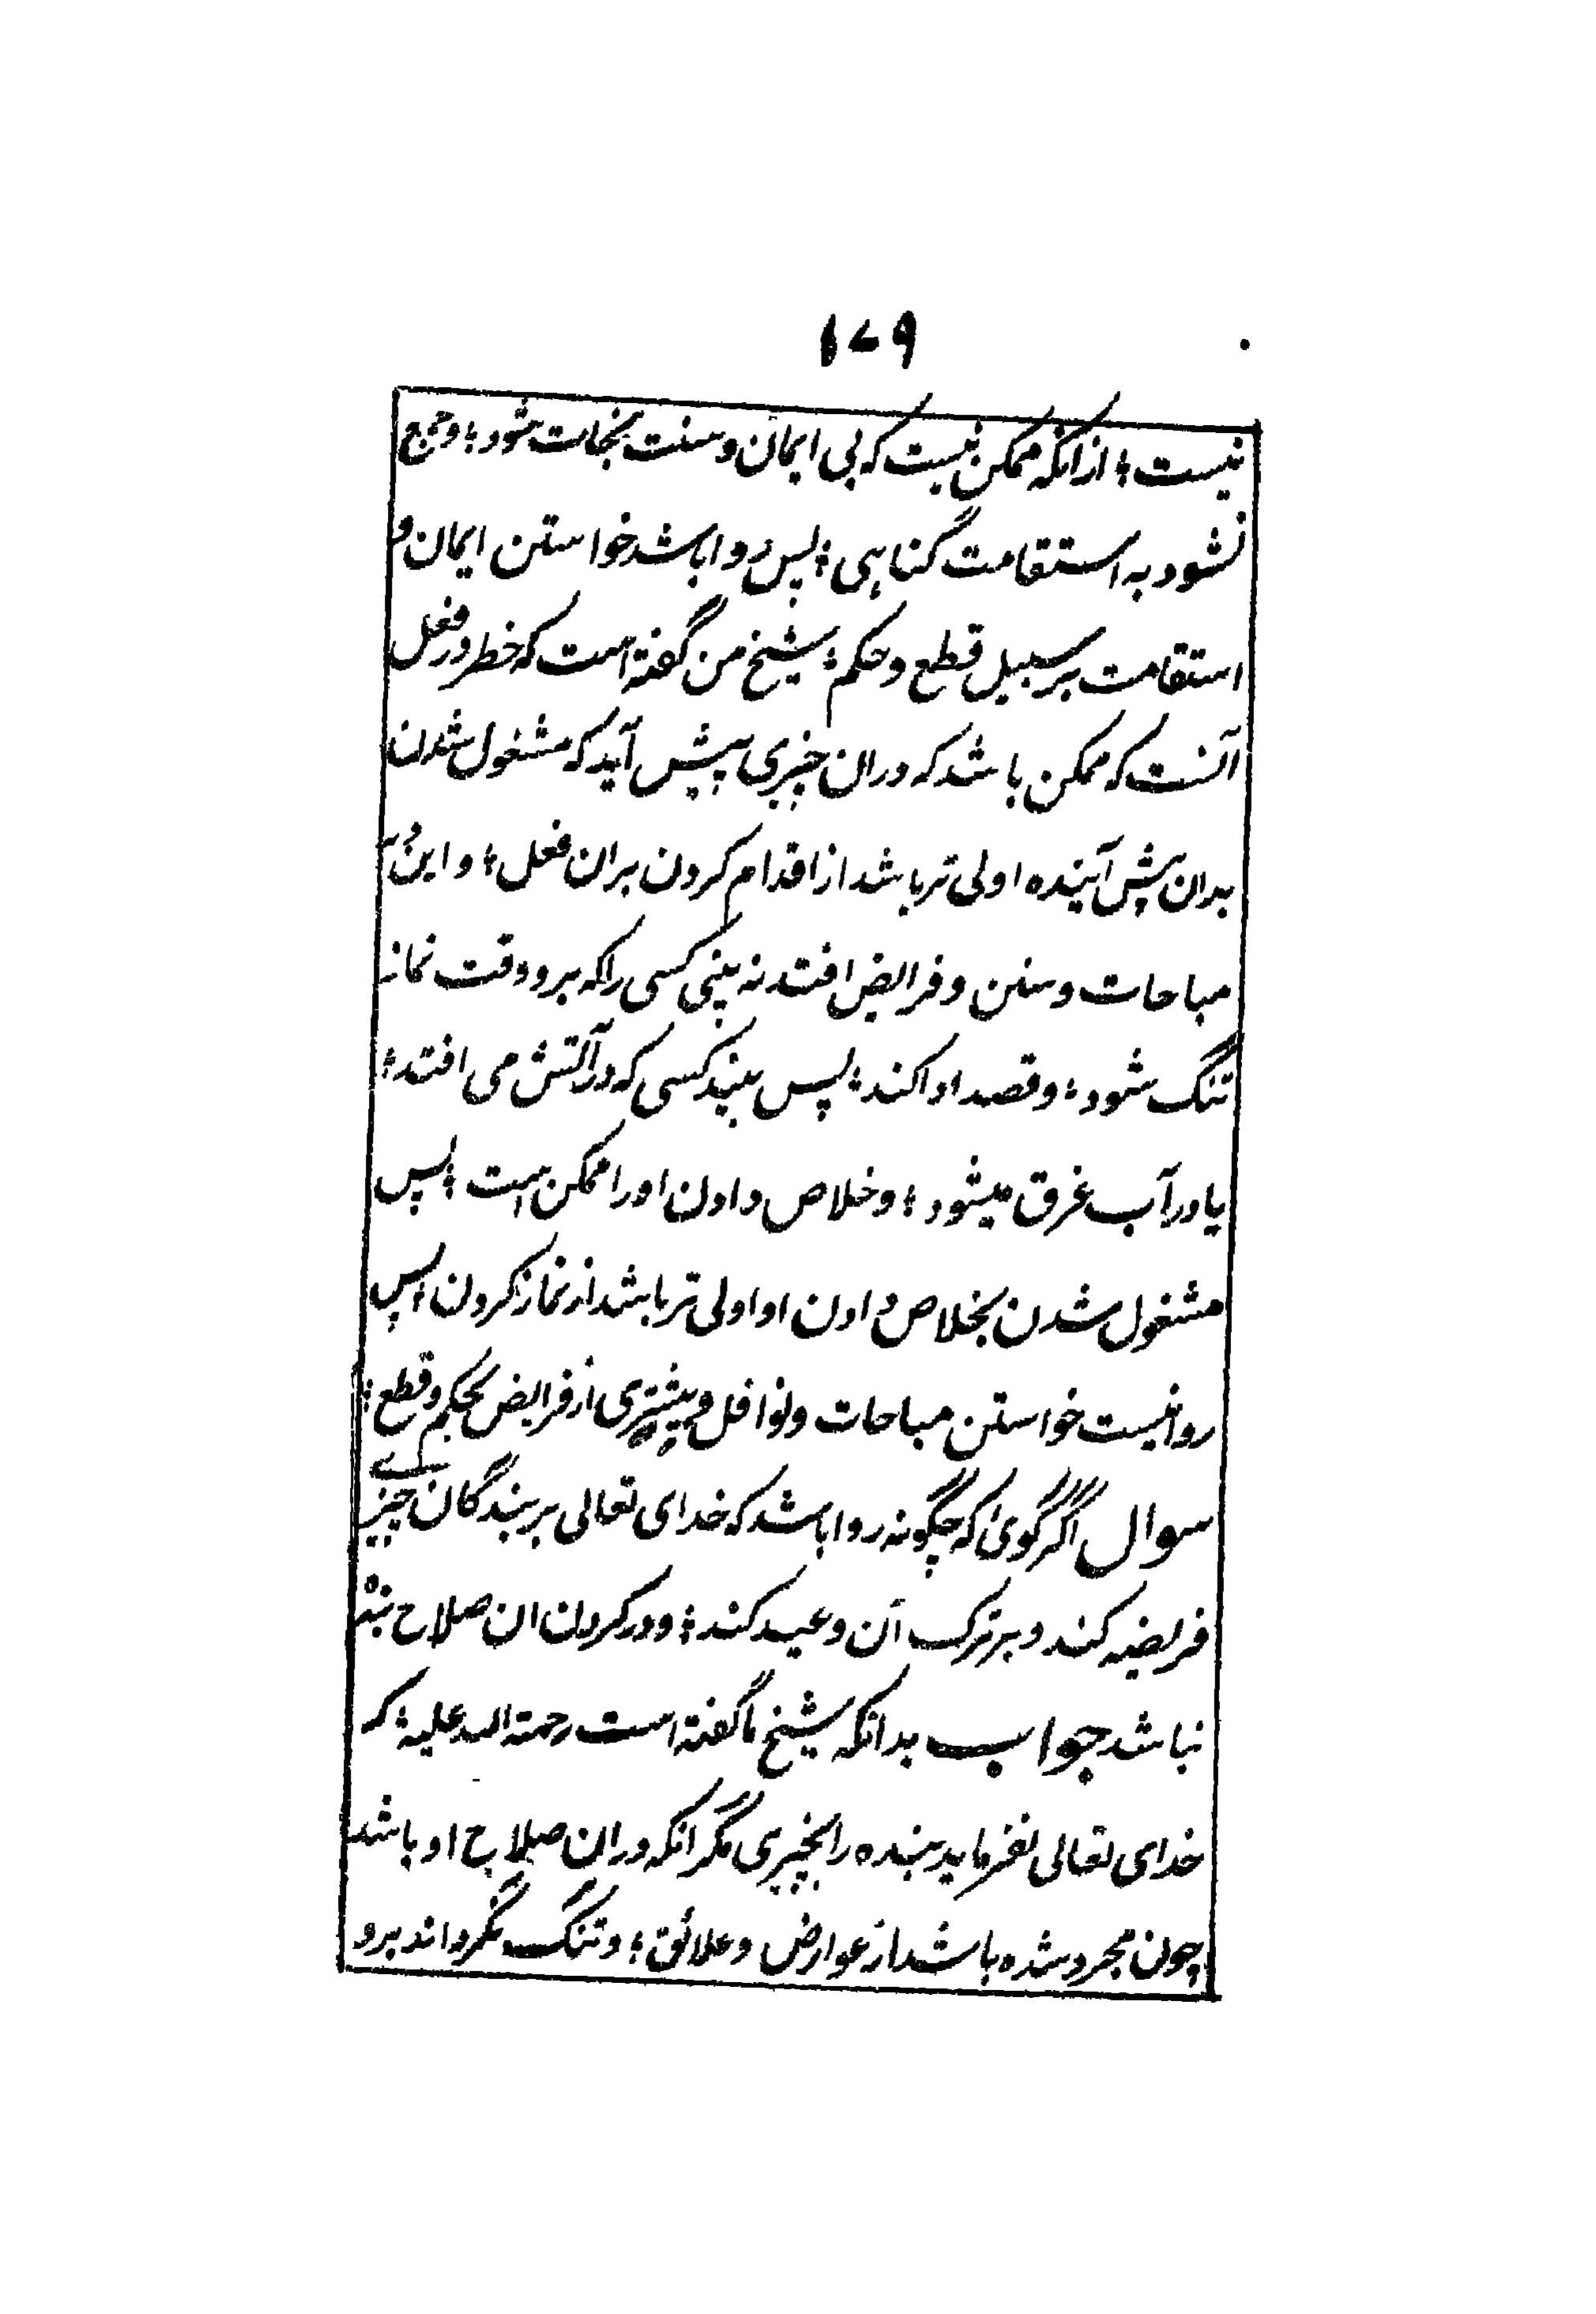 ۱۷۹
نیست؛ ازانکه ممکن نیست که بی ایمان و سنت نجات شود؛ و جمع
نشود به استقامت گناہی؛ پس روا باشد خواستن ایمان و
استقامت بر سبیل قطع و حکم؛ شیخ من گفته است که خطر در فعل
آنست که ممکن باشد که دران چیزی پیش آید که مشغول شدن
بدان پیش آینده اولی تر باشد از اقدام کردن بران فعل؛ و این در
مباحات و سنن و فرایض افتد نہ بینی کسی را که برو وقت نماز
تنگ شود؛ و قصد ادا کند؛ پس بیند کسی که در آتش می افتد؛
یا در آب غرق میشود؛ و خلاص دادن او را ممکن است؛ پس
مشغول شدن بخلاص دادن او اولی تر باشد از نماز کردن؛ پس
روا نیست خواستن مباحات و نوافل و بیشتری از فرایض بحکم و قطع؛
سوال اگر گوئی که چگونه روا باشد که خدای تعالی بر بندگان چیزے
فریضه کند و بر ترک آن وعید کند؛ و در کردن ان صلاح بنده
نباشد جواب بدانکه شیخ ما گفته است رحمة الله علیه؛ که
خدای تعالی نفرماید بنده را بچیزی مگر انکه دران صلاح او باشد
چون مجرد شده باشد از عوارض و علائق؛ و تنگ نگرداند برو